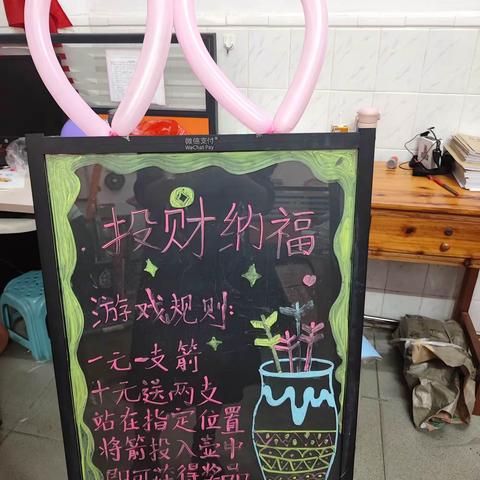 微信支付
WeChat Pay
投财纳福
游戏规则:
一元一支箭
十元送两支
站在指定位置
将箭投入壶中
即可获得奖品